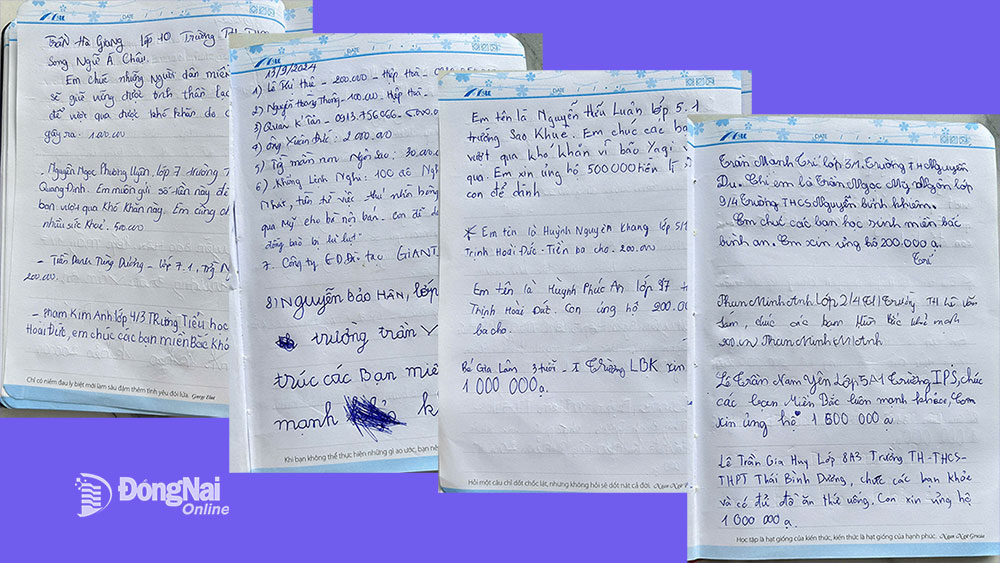 DATE
Trần Hà Giang lớp 10 Trường TH THCS
Song Ngữ Á Châu.
Em chúc những người dân miền
sẽ giữ vững được tinh thần lạc
để vượt qua được khó khăn do
gây ra. 100.000
Nguyễn Ngọc Phương Uyên, lớp 7 trường T
Quang Định. Em muốn gửi số tiền này để
bạn vượt qua Khó Khăn này. Em cũng ch
nhiều sức khoẻ. 500.000
- Trần Danh Tùng Dương - lớp 7.1, trg N
200.000.
- Phạm Kim Anh lớp 4/3 Trường Tiểu học
Hoài Đức, em chúc các bạn miền Bắc khỏ
Chỉ có niềm đau ly biệt mới làm sâu đậm thêm tình yêu đôi lứa. George Eliot
DATE
13/9/2024
1) Lê Thị Thuê - 200.000 - Hiệp Hoà -
2) Nguyễn Hoàng Thông - 100.000. Hiệp Hoà -
3) Quan K' Tân - 0913.756066 - 5.000.0
4) Ông Xuân Đức: 2.000.000
5) Tg mầm non Ngôi Sao: 30.000.0
6) Khổng Linh Nghi: 100 đô
Như, tiền từ việc thi nhìn bóng
qua Mỹ cho bé nội bán. Con để d
đồng bào bị lũ lụt".
7. Công ty GIANT
8) Nguyễn Bảo Hân, lớp
trường trần V
trúc các Bạn miề
mạnh k
Khi bạn không thể thực hiện những gì ao ước, bạn nê
DATE
Em tên là Nguyễn Hữu Luân lớp 5.1
trường Sao Khuê. Em chúc các bạ
vượt qua khó khăn vì bão Yagi
qua. Em xin ủng hộ 500000 tiền lì
con để dành.
* Em tên là Huỳnh Nguyên Khang lớp 5/1
Trịnh Hoài Đức. Tiền ba cho. 200.000
Em tên là Huỳnh Phúc An lớp 87
Trịnh Hoài Đức. Con ủng hộ 200.00
ba cho.
Bé Gia Lâm 3 tuổi - Trường LBK xin
1 000 000đ.
Hỏi một câu chỉ dốt chốc lát, nhưng không hỏi sẽ dốt nát cả đời.
DATE
Trần Mạnh Trí lớp 3/1. Trường TH Nguyễn
Du. Chị em là Trần Ngọc Mỹ Nguyên lớp
9/4 Trường THCS Nguyễn bỉnh khiêm.
Em chúc các bạn học sinh miền bắc
bình an. Em xin ủng hộ 200.000 ạ.
Trí
Phan Minh Anh Lớp 2/4 Trường TH Lê Văn
Tám, chúc các bạn Miền Bắc khỏe mạnh
200.000 Phan Minh Anh
Lê Trần Nam Yên Lớp 5A1 Trường IPS, chúc
các bạn Miền Bắc luôn mạnh khỏe, Con
xin ủng hộ 1 500 000 ạ
Lê Trần Gia Huy Lớp 8A3 Trường TH-THCS-
THPT Thái Bình Dương, chúc các bạn khỏe
và có đủ đồ ăn thức uống. Con xin ủng hộ
1 000 000 ạ.
Học tập là hạt giống của kiến thức, kiến thức là hạt giống của hạnh phúc. Ngạn Ngữ Gruzia
ĐồngNai
Online